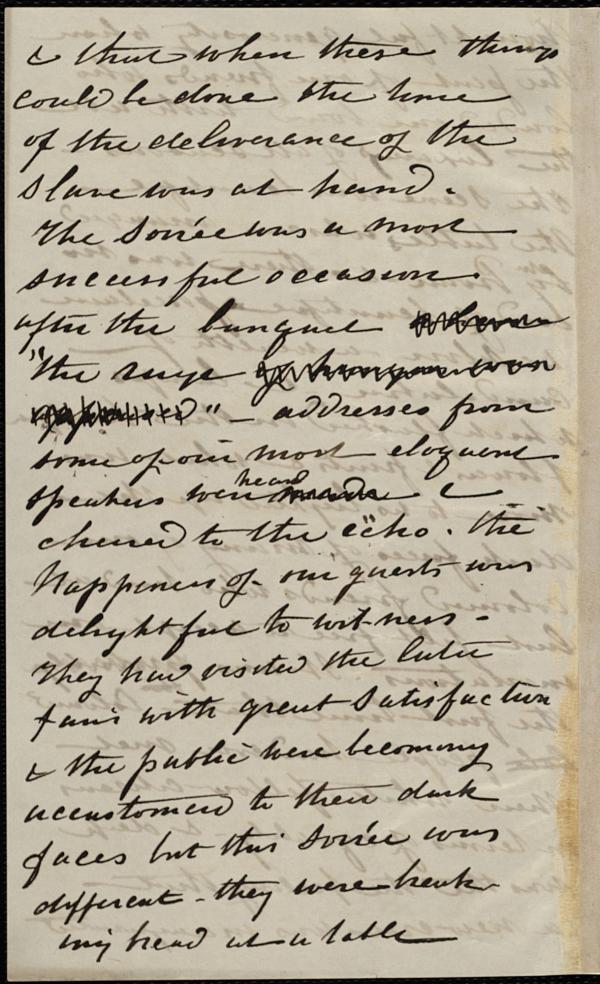 & that when these things
could be done the time
of the deliverance of the
slave was at hand.
The Soirée was a most
successful occasion.
after the banquet
"the rage
" – addresses from
some of our most eloquent
speakers were heard &
cheered to the echo. The
happiness of our guests was
delightful to witness –
They had visited the latter
fairs with great satisfaction
& the public were becoming
accustomed to their dark
faces but this Soirée was
different – they were break-
ing bread at a table